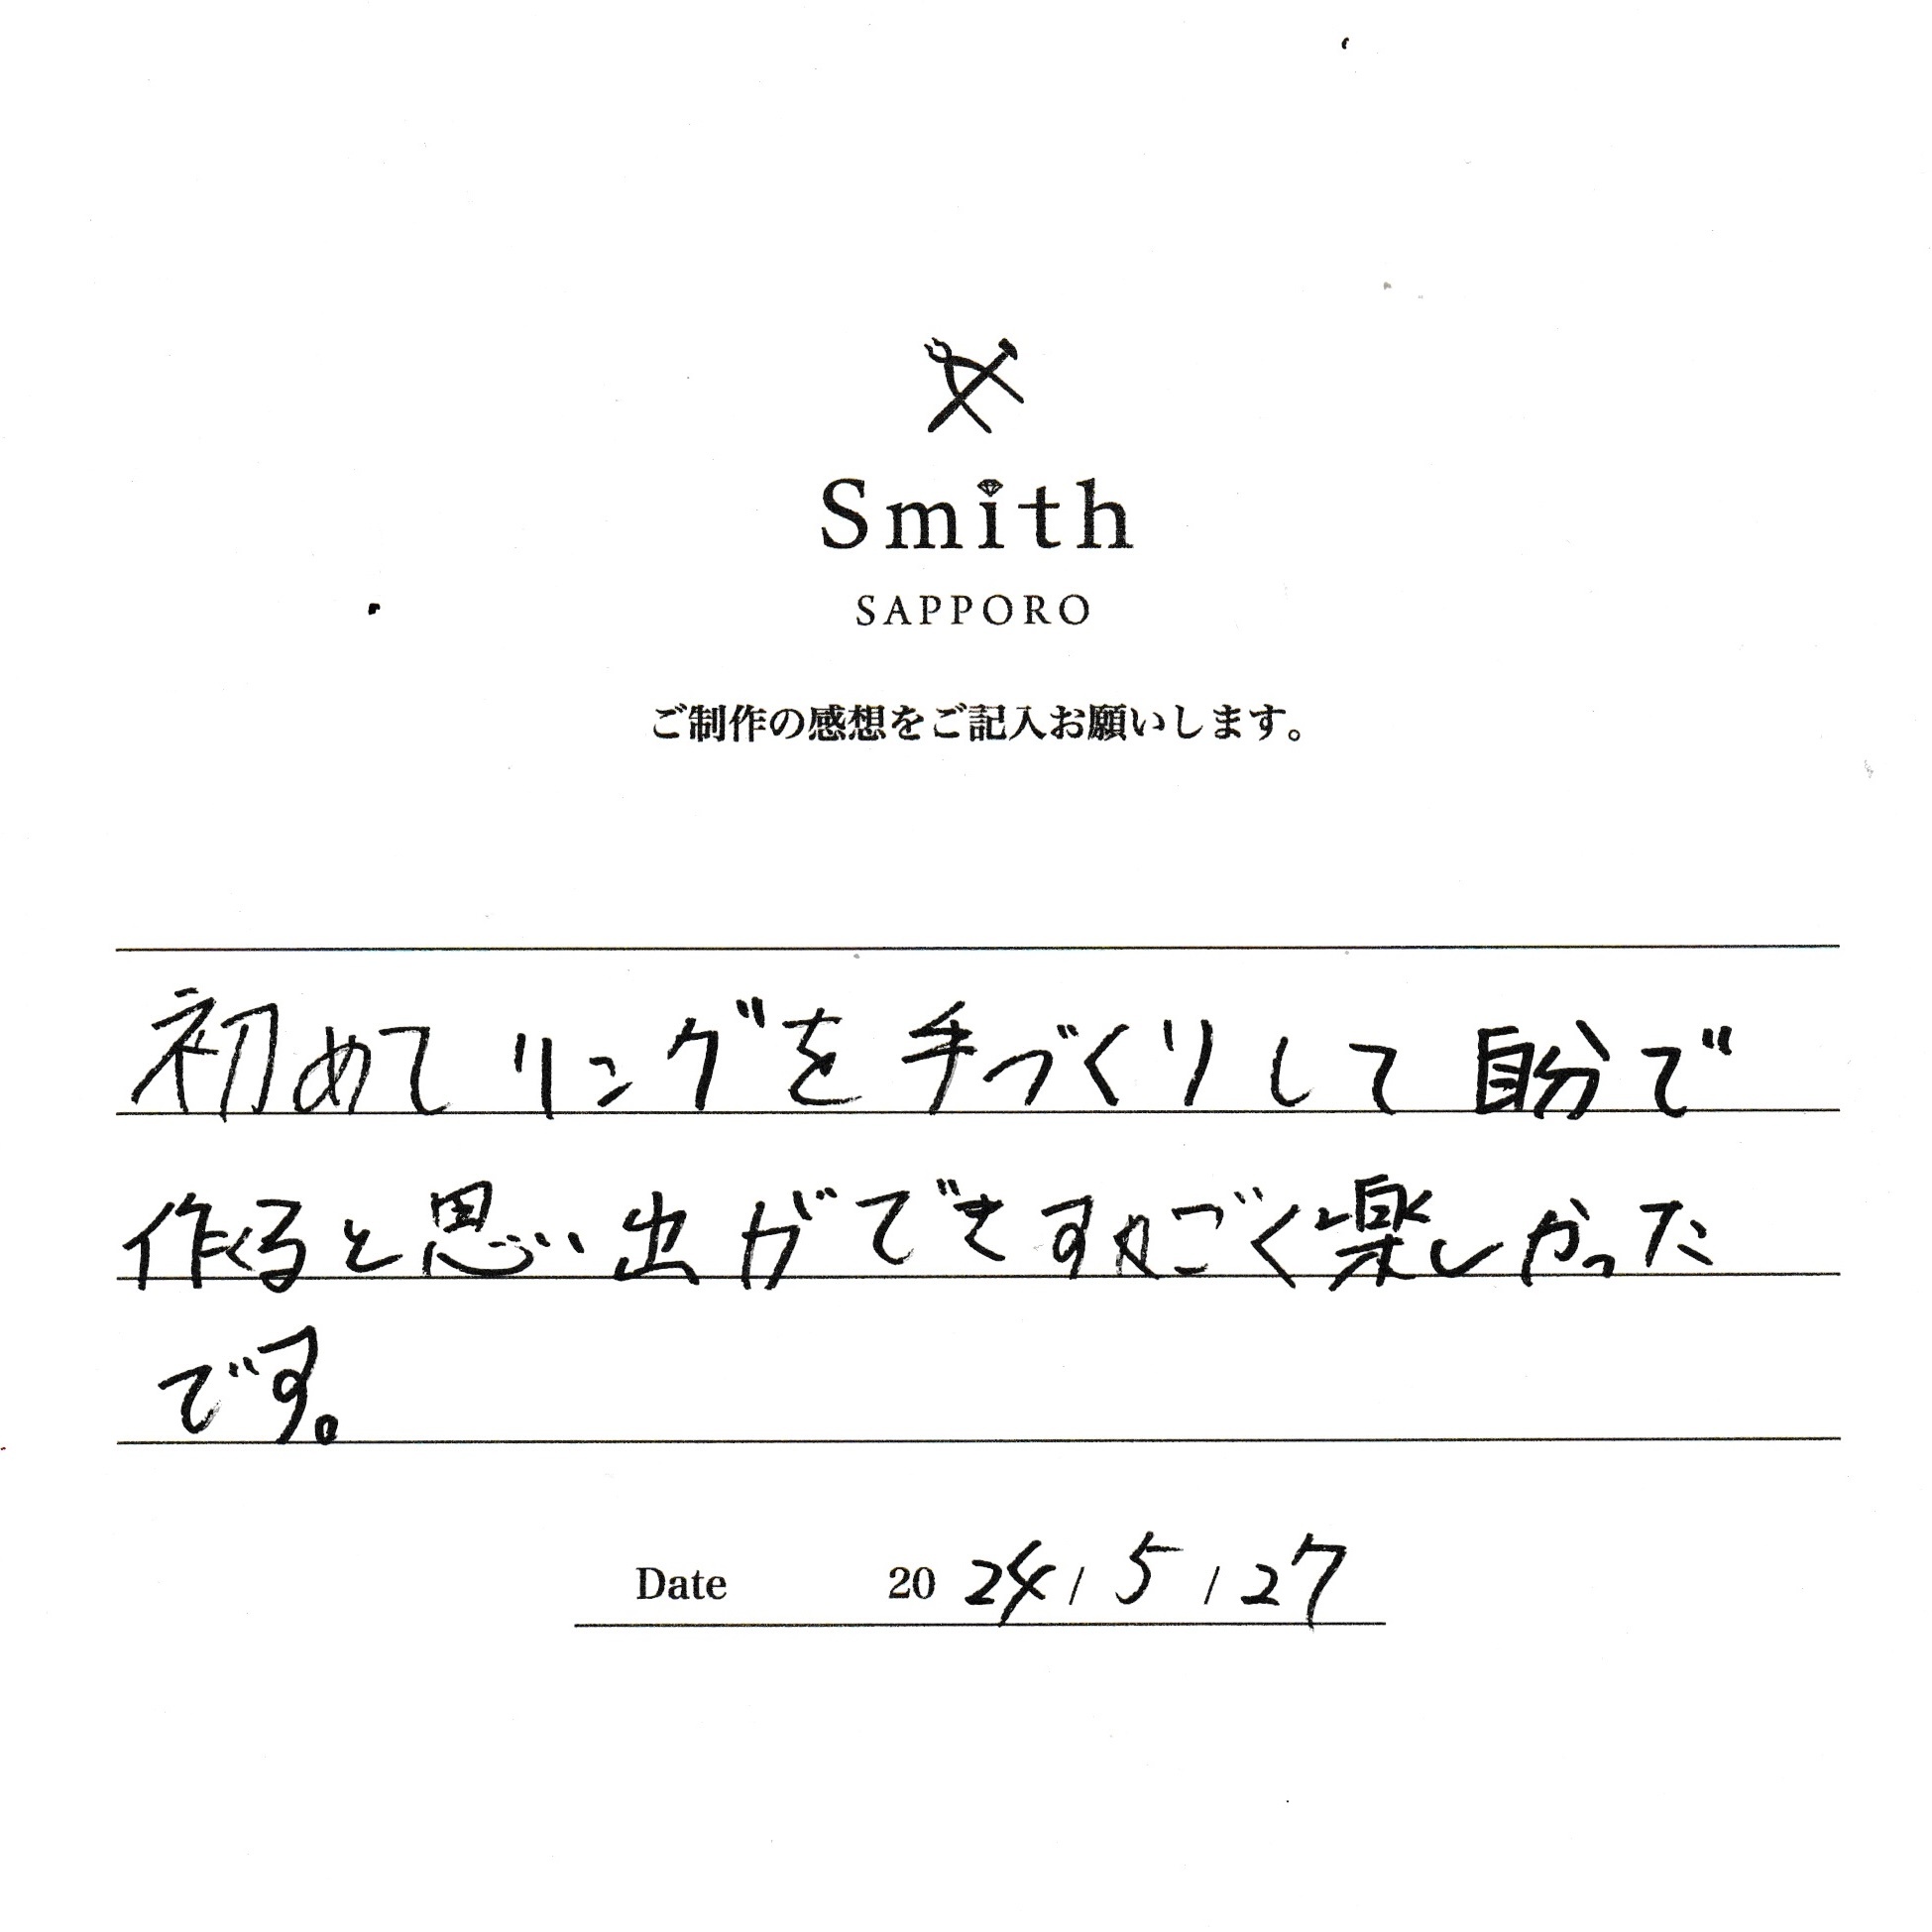 Smith
SAPPORO
ご制作の感想をご記入お願いします。
初めてリングを手づくりして自分で
作ると思い出ができすごく楽しかった
です。
Date 2024/5/27